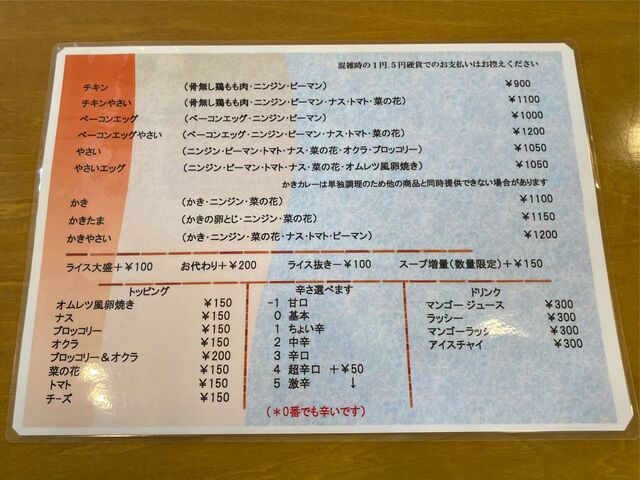 混雑時の1円.5円硬貨でのお支払いはお控えください
チキン （骨無し鶏もも肉・ニンジン・ピーマン） ￥900
チキンやさい （骨無し鶏もも肉・ニンジン・ピーマン・ナス・トマト・菜の花） ￥1100
ベーコンエッグ （ベーコンエッグ・ニンジン・ピーマン） ￥1000
ベーコンエッグやさい （ベーコンエッグ・ニンジン・ピーマン・ナス・トマト・菜の花） ￥1200
やさい （ニンジン・ピーマン・トマト・ナス・菜の花・オクラ・ブロッコリー） ￥1050
やさいエッグ （ニンジン・ピーマン・トマト・ナス・菜の花・オムレツ風卵焼き） ￥1050
かきカレーは単独調理のため他の商品と同時提供できない場合があります
かき （かき・ニンジン・菜の花） ￥1100
かきたま （かきの卵とじ・ニンジン・菜の花） ￥1150
かきやさい （かき・ニンジン・菜の花・ナス・トマト・ピーマン） ￥1200
ライス大盛＋￥100 お代わり＋￥200 ライス抜きー￥100 スープ増量(数量限定)＋￥150
トッピング
オムレツ風卵焼き ￥150
ナス ￥150
ブロッコリー ￥150
オクラ ￥150
ブロッコリー＆オクラ ￥200
菜の花 ￥150
トマト ￥150
チーズ ￥150
辛さ選べます
-1 甘口
0 基本
1 ちょい辛
2 中辛
3 辛口
4 超辛口 ＋￥50
5 激辛 ↓
（＊0番でも辛いです）
ドリンク
マンゴー ジュース ￥300
ラッシー ￥300
マンゴーラッシー ￥300
アイスチャイ ￥300